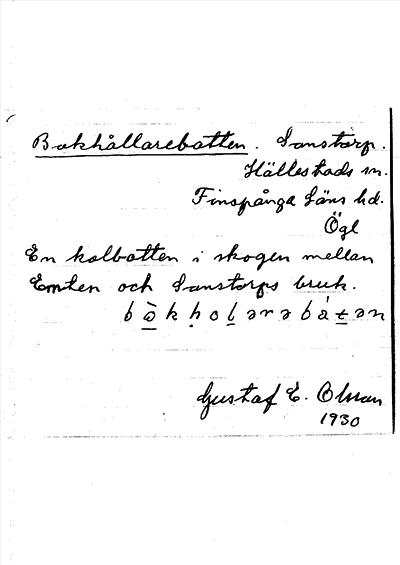 Bakhållarebotten. Sanstorp.
Hällestads sn.
Finspånga läns hd.
Ögl
En kolbotten i skogen mellan
Emten och Sanstorps bruk.
bàkḥolarəbátən
Gustaf E. Olsson
1930